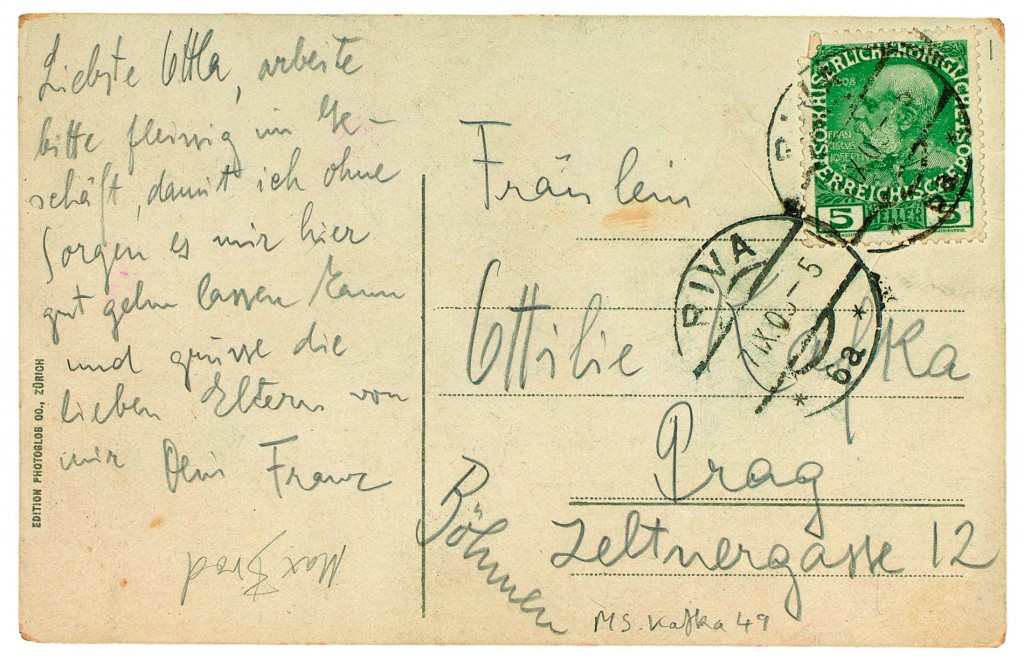 Liebste Ottla, arbeite
bitte fleissig im Ge-
schäft, damit ich ohne
Sorgen es mir hier
gut gehn lassen kann
und grüsse die
lieben Eltern von
mir Dein Franz
Max Brod
EDITION PHOTOGLOB CO., ZÜRICH
FRAN
CISCUS
JOSEPH I
5 HELLER 5
RIVA
IX.09-5
6a
Fräulein
Ottilie Kafka
Prag
Zeltnergasse 12
Böhmen
MS. Kafka 49